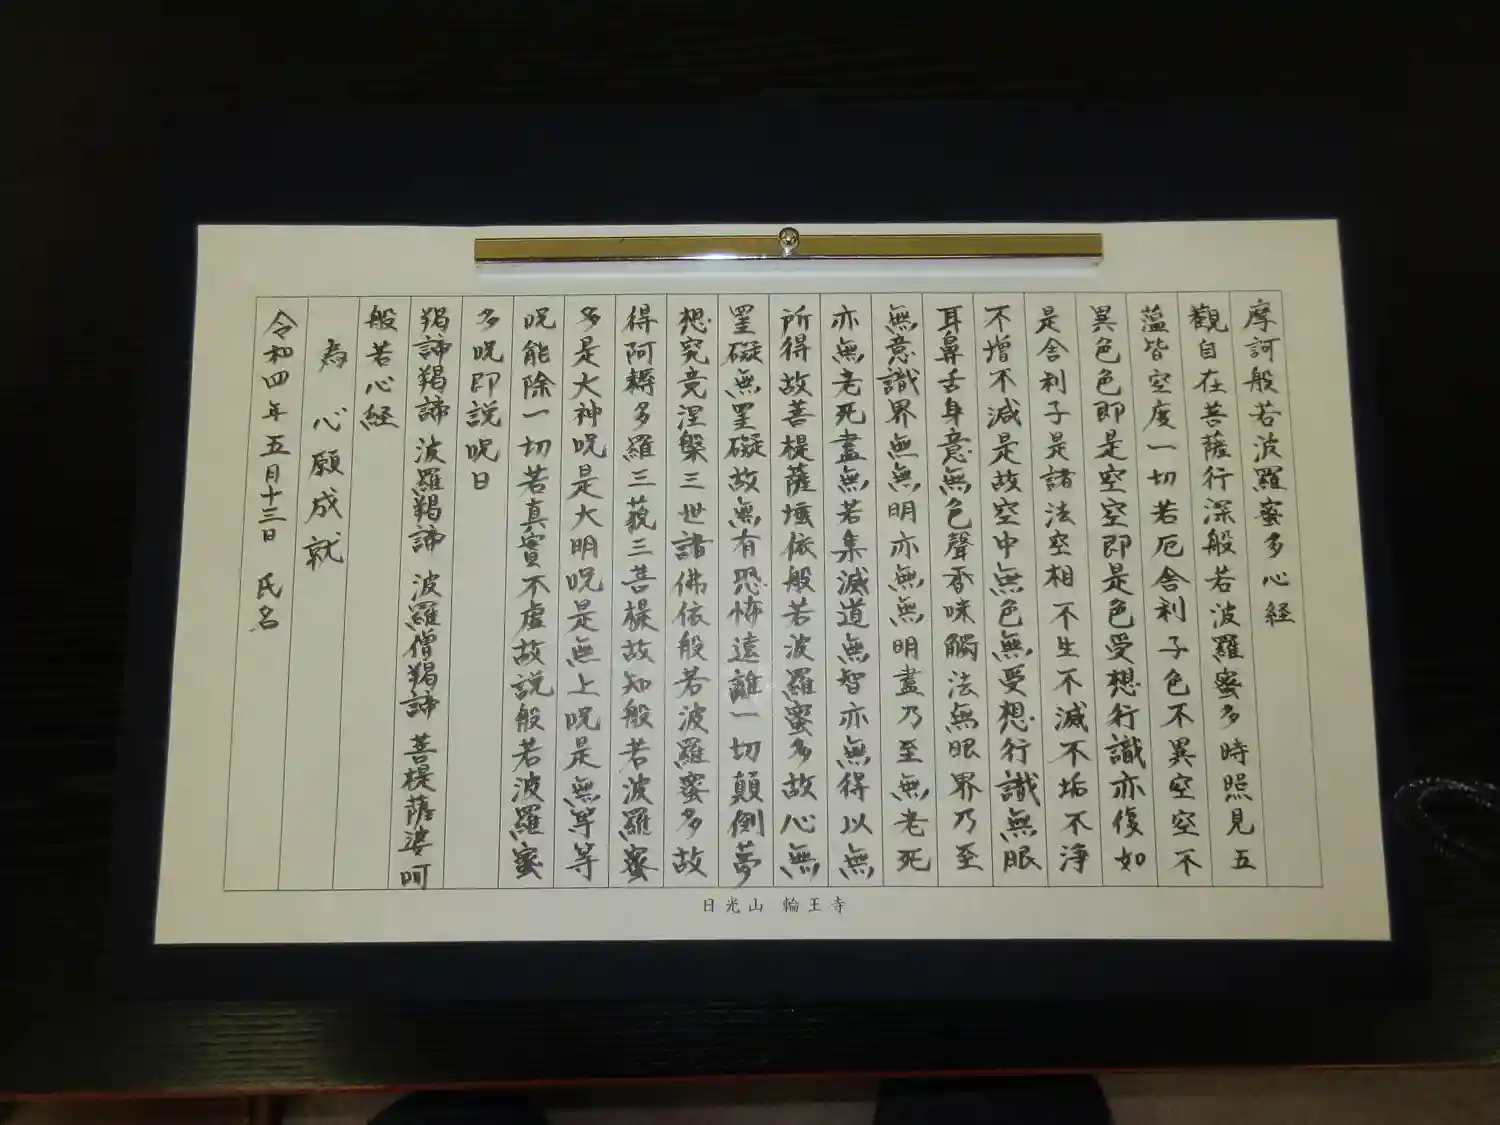 摩訶般若波羅蜜多心経
觀自在菩薩行深般若波羅蜜多時照見五
蘊皆空度一切若厄舎利子色不異空空不
異色色即是空空即是色受想行識亦復如
是舎利子是諸法空相不生不滅不垢不浄
不増不減是故空中無色無受想行識無眼
耳鼻舌身意無色聲香味觸法無眼界乃至
無意識界無無明亦無無明盡乃至無老死
亦無老死盡無若集滅道無智亦無得以無
所得故菩提薩埵依般若波羅蜜多故心無
罣礙無罣礙故無有恐怖遠離一切顛倒夢
想究竟涅槃三世諸佛依般若波羅蜜多故
得阿耨多羅三藐三菩提故知般若波羅蜜
多是大神呪是大明呪是無上呪是無等等
呪能除一切若真實不虚故説般若波羅蜜
多呪即説呪曰
羯諦羯諦 波羅羯諦 波羅僧羯諦 菩提薩婆呵
般若心経
為 心願成就
令和四年五月十三日 氏名
日光山 輪王寺